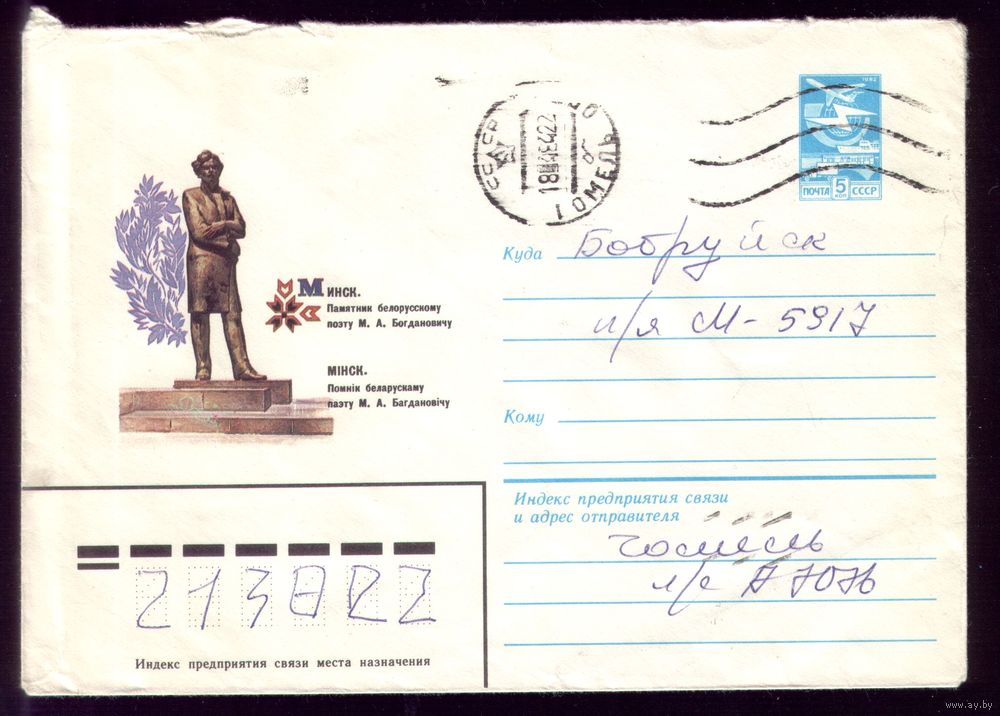 1982
ПОЧТА 5 КОП СССР
СССР
ГОМЕЛЬ
Куда Бобруйск
п/я М-5917
Кому
Минск.
Памятник белорусскому
поэту М. А. Богдановичу
МІНСК.
Помнік беларускаму
паэту М. А. Багдановічу
Индекс предприятия связи
и адрес отправителя
Гомель
п/с А 7076
213822
Индекс предприятия связи места назначения
www.ay.by